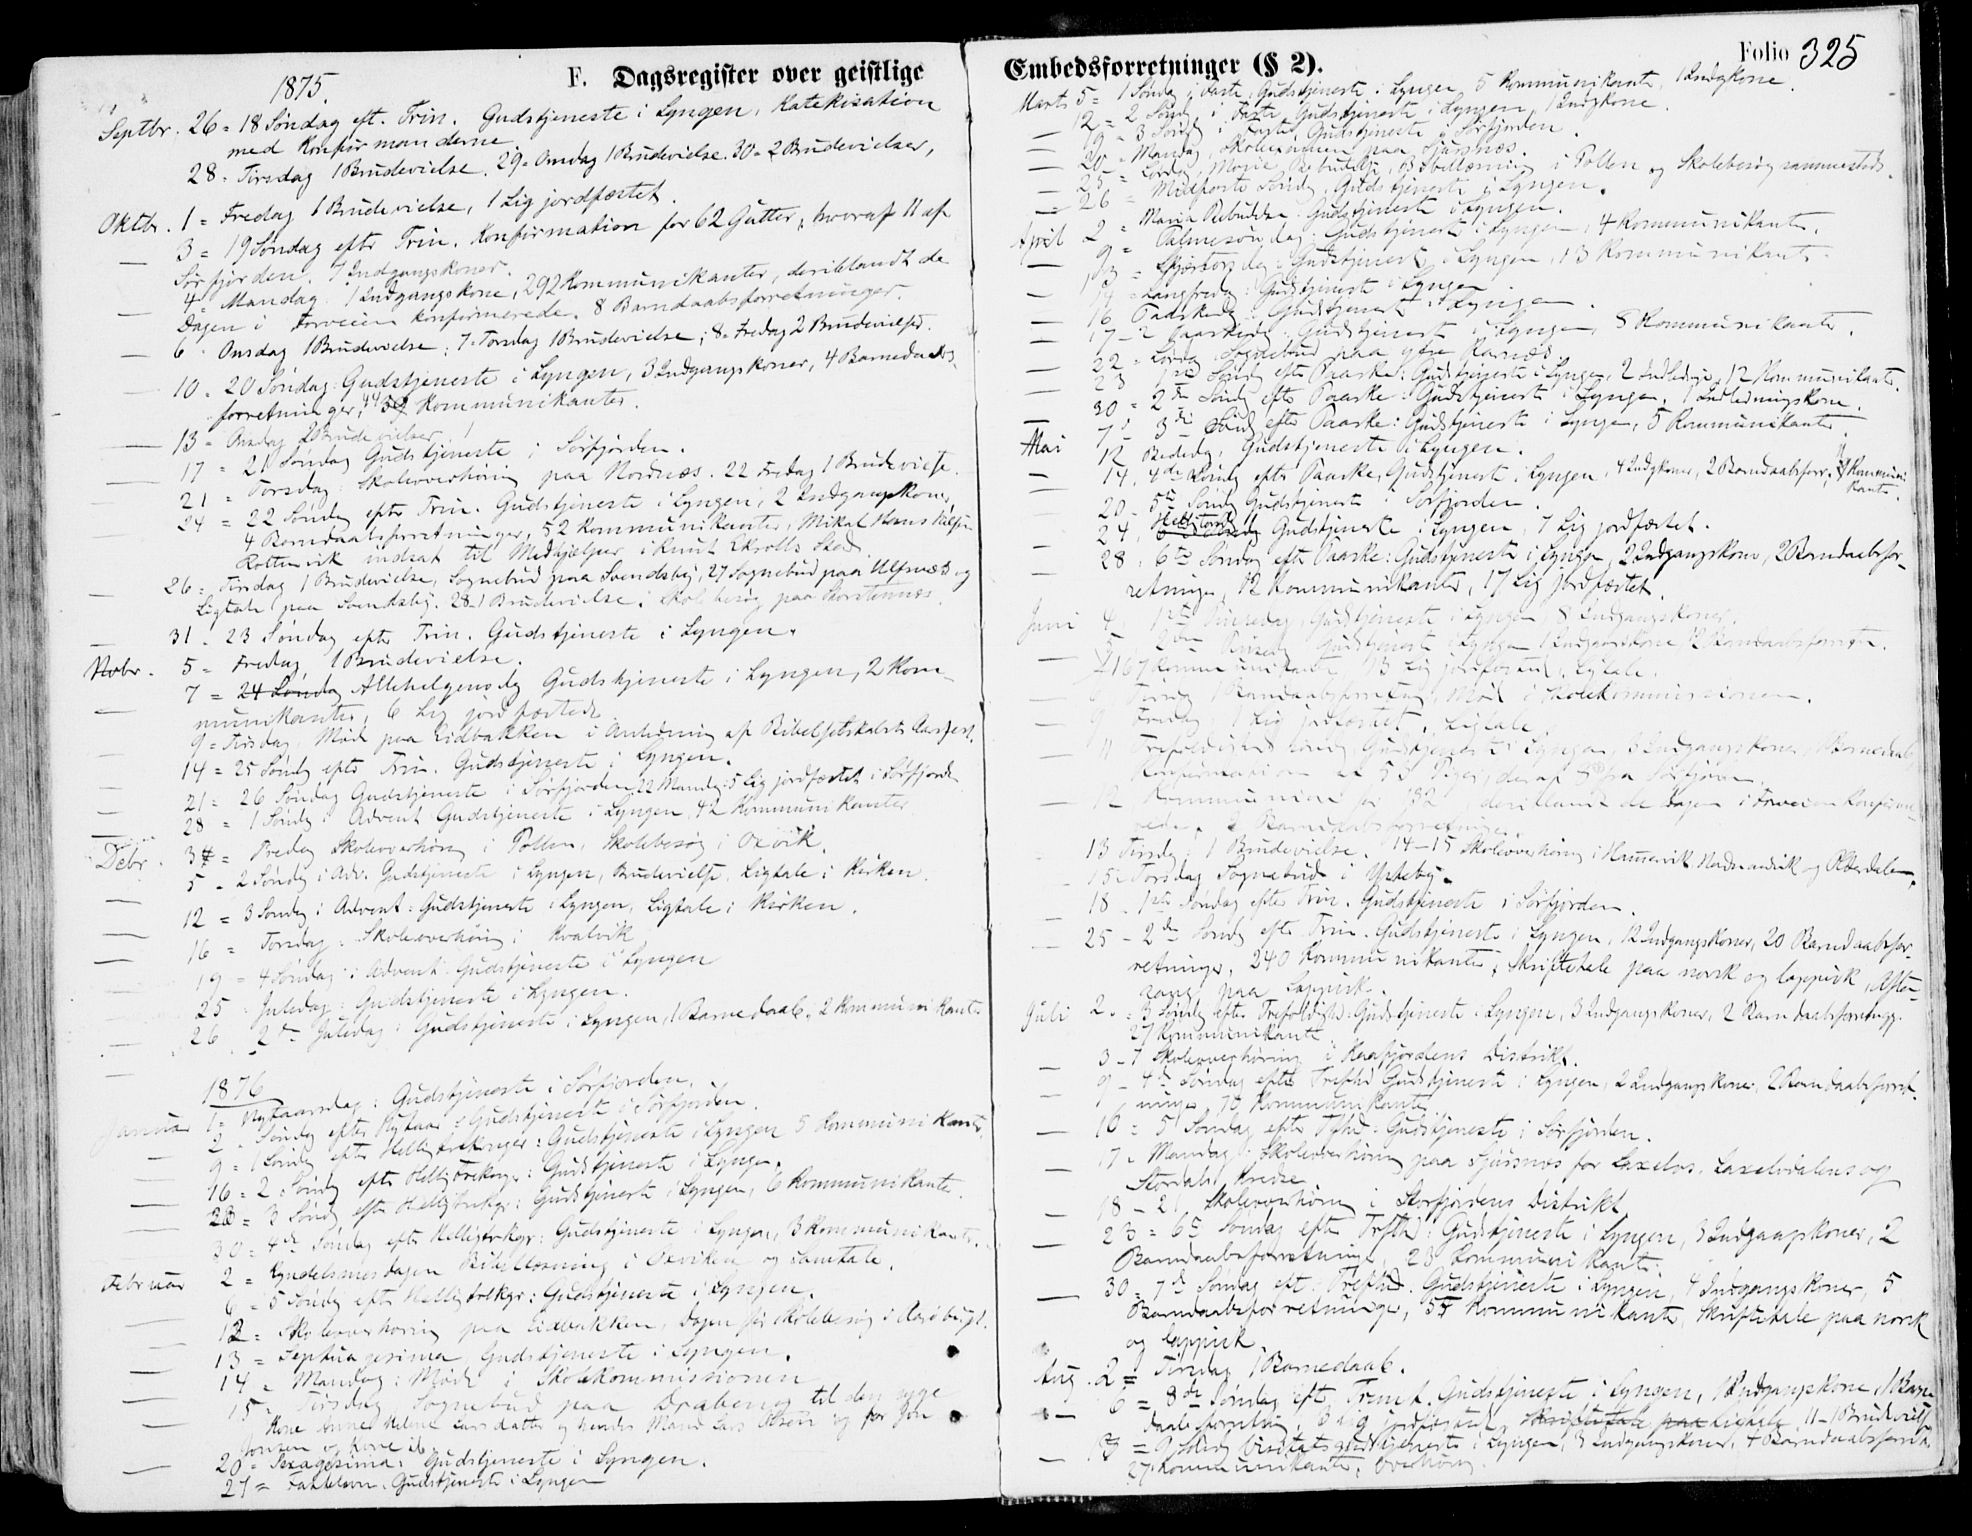 F. Dagsregister over geistlige
1875.
Septbr. 26 = 18 Søndag eft. Trin. Gudstjeneste i Lyngen, Katekisation
med Konfirmanderne
28 = Tirsdag 1 Brudevielse. 29 = Onsdag 1 Brudevielse. 30 = 2 Brudevielser,
Oktbr. 1 = Fredag 1 Brudevielse, 1 Lig jordfæstet.
— 3 = 19 Søndag efter Trin. Konfirmation for 62 Gutter, hvoraf 11 af
Sørfjorden. 7 Indgangskoner.
— 4 = Mandag 1 Indgangskone, 292 Kommunikanter, deriblandt de
Dagen i Forveien konfirmerede. 8 Barndaabsforretninger.
— 6 Onsdag 1 Brudevielse; 7 = Torsdag 1 Brudevielse; 8 = Fredag 2 Brudevielser.
10 = 20 Søndag: Gudstjeneste i Lyngen, 3 Indgangskoner, 4 Barnedaabs-
forretninger, 44 Kommunikanter.
— 13 = Onsdag 2 Brudevielser
17 = 21 Søndag Gudstjeneste i Sørfjorden.
21 = Torsdag: Skoleoverhøring paa Nordnæs. 22 Fredag 1 Brudevielse.
24 = 22 Søndag efter Trin. Gudstjeneste i Lyngen, 2 Indgangskoner,
4 Barndaabsforretninger, 52 Kommunikanter, Mikal Hans
indsat til Medhjælper, i Knut Skrolls Sted.
— 26 = Tirsdag 1 Brudevielse, Sognebud paa Svendsby, 27 Sognebud paa Ulfsnæs og
Ligtale paa Svendsby. 28 = 1 Brudevielse. Skolebesøg paa
— 31 = 23 Søndag efter Trin. Gudstjeneste i Lyngen.
Novbr. 5 = Fredag 1 Brudevielse.
— 7 = 24 Søndag Allehelgensdg Gudstjeneste i Lyngen, 2 Kom-
munikanter, 6 Lig jordfæstede
9 = Tirsdag, Møde paa Eidbakken i Anledning af Bibelselskabets Aarsfest.
14 = 25 Søndg efter Trin. Gudstjeneste i Lyngen.
— 21 = 26 Søndag Gudstjeneste i Sørfjorden 22 Mandag: 5 Lig jordfæstet i Sørfjorden
— 28 = 1 Søndg i Advent Gudstjeneste i Lyngen, 42 Kommunikanter
Debr. 3 = Fredag Skoleoverhøring i Pollen, Skolebesøg i Oxvik.
5 = 2 Søndg i Adv. Gudstjeneste i Lyngen, Brudevielse, Ligtale i Kirken.
— 12 = 3 Søndg i Advent: Gudstjeneste i Lyngen, Ligtale i Kirken.
— 16 = Torsdag: Skoleoverhøring i Kvalvik
— 19 = 4 Søndag i Advent: Gudstjeneste i Lyngen
— 25 Juledag: Gudstjeneste i Lyngen.
— 26 2den Juledag: Gudstjeneste i Lyngen, 1 Barnedaab, 2 Kommunikanter
1876
Januar 1 = Nytaarsdag: Gudstjeneste i Sørfjorden.
2 = Søndag efter Nytaar: Gudstjeneste i Sørfjorden.
9 = 1 Søndg efter Helligtrekonger: Gudstjeneste i Lyngen 5 Kommunikanter
— 16 = 2 Søndg efter Helligtrekonger: Gudstjeneste i Lyngen.
— 23 = 3 Søndg efter Helligtrekgr: Gudstjeneste i Lyngen, 6 Kommunikanter.
— 30 = 4de Søndag efter Helligtrekgr: Gudstjeneste i Lyngen, 3 Kommunikanter.
Februar 2 = Kyndelsmesdagen Bibellæsning i Oxviken og Samtale.
6 = 5 Søndg efter Helligtrekgr: Gudstjeneste i Lyngen.
— 12 = Skoleoverhøring paa Eidbakken, Dagen før Skolebesøg i
— 13 = Septuagesima Gudstjeneste i Lyngen.
— 14 = Mandag: Møde i Skolekommissionen
— 15 = Tirsdag Sognebud paa til den syge
Kone Anne Helene Larsdatter og hendes Mand Lars Olsen og for Jon
Jonsen og Kone ib.
— 20 = Sexagesima: Gudstjeneste i Lyngen.
27 = Fastelavn: Gudstjeneste i Lyngen
Embedsforretninger (§ 2).
Folio 325
Marts 5 = 1 Søndg i Faste, Gudstjeneste i Lyngen 5 Kommunikanter, 1 Indgkone.
— 12 = 2 Søndg i Faste Gudstjeneste i Lyngen, 1 Indgkone.
— 19 = 3 Søndg i Faste Gudstjeneste i Sørfjorden.
— 20 = Mandag, Skoleexamen paa Sjursnæs.
— 25 = Lørdag, Mariæ Bebudelse, Bibellæsning i Pollen og Skolebesøg sammesteds.
— 26 = Midfaste Søndg, Gudstjeneste i Lyngen.
April 2 = Mariæ Bebudelse. Gudstjeneste i Lyngen.
— 9 = Palmesøndag: Gudstjeneste i Lyngen, 4 Kommunikanter.
— 13 = Skjærtorsdag: Gudstjeneste i Lyngen, 13 Kommunikanter.
— 14 = Langfredag: Gudstjeneste i Lyngen.
— 16 Paaskedg: Gudstjeneste i Lyngen.
— 17 = 2 Paaskedg: Gudstjeneste i Lyngen, 8 Kommunikanter.
— 22 = Lørdag Sognebud paa ytre Karnæs.
— 23 1ste Søndg efter Paaske: Gudstjeneste i Lyngen, 2 Indledn., 12 Kommunikanter.
— 30 = 2den Søndg efter Paaske: Gudstjeneste i Lyngen, 1 Indledningskone.
Mai 7 = 3die Søndg efter Paaske: Gudstjeneste i Lyngen, 5 Kommunikanter
12 Bededg, Gudstjeneste i Lyngen.
— 14. 4de Søndg efter Paaske, Gudstjeneste i Lyngen, 4 Indgkoner, 2 Barndaabsforr., Kommuni-
kanter.
20 = 5te Søndg Gudstjeneste Sørfjorden.
— 24. Gudstjeneste i Lyngen, 1 Lig jordfæstet.
— 28. 6te Søndag efter Paaske: Gudstjeneste i Lyngen, 2 Indgangskoner, 2 Barndaabsfor-
retninger, 12 Kommunikanter, 17 Lig jordfæstet.
Juni 4 1ste Pinsedag, Gudstjeneste i Lyngen, 8 Indgangskoner,
5 2den Pinsedg Gudstjeneste i Lyngen 1 Indgangskone 12 Barndaabsforretn.
167 Kommunikanter 13 Lig jordfæstet, Ligtale.
Barndaabsforretning, Møde i Skolekommissionen.
9 Fredag 1 Lig jordfæstet, Ligtale
11 Trefoldighed Søndag, Gudstjeneste i Lyngen, 3 Indgangskoner, Barnedaab
Konfirmation af 53 Piger, deraf fra Sørfjorden.
— 12 Kommunion for 182 deriblandt de Dagen i Forveien Konfirme-
rede, 2 Barndaabsforretninger.
- 13 Tirsdg: 1 Brudevielse. 14–15 Skoleoverhøring i og Olderdalen.
- 15 = Torsdag Sognebud i
- 18 = 1ste Søndag efter Trin. Gudstjeneste i Sørfjorden.
— 25 = 2den Søndg efter Trin. Gudstjeneste i Lyngen, 12 Indgangskoner, 20 Barndaabsfor-
retninger, 240 Kommunikanter, Skriftetale paa norsk og lappisk, Aften-
sang paa Lappisk.
Juli 2 = 3 Søndg efter Trefoldighd: Gudstjeneste i Lyngen, 3 Indgangskoner, 2 Barndaabsforretngr.
27 Kommunikanter
— 3–7 Skoleoverhøring i Kaafjordens Distrikt.
— 9 = 4de Søndag efter Trefhd Gudstjeneste i Lyngen, 2 Indgangskoner, 2 Barndaabsforret-
ninger, 70 Kommunikanter
— 16 = 5 Søndag efter Trfhd: Gudstjeneste i Sørfjorden.
— 17 = Mandag: Skoleoverhøring paa Sjursnæs for Laxelvs, Laxelvdalens og
Stordals Kredse
— 18–21 Skoleoverhøring i Storfjordens Distrikt
— 23 = 6te Søndag efter Trfhd: Gudstjeneste i Lyngen, 3 Indgangskoner, 2
Barndaabsforretninger, 23 Kommunikanter.
— 30 = 7de Søndag eft. Trefhd. Gudstjeneste i Lyngen, 4 Indgangskoner, 5
Barndaabsforretninger, 55 Kommunikanter, Skriftetale paa norsk
og lappisk
Aug. 2 = Tirsdag 1 Barnedaab.
— 6 = 8de Søndag eft. Trinit. Gudstjeneste i Lyngen, 1 Indgangskone, 1 Barne-
daabsforretning, 6 Lig jordfæstede, Skriftetale paa Ligtale 11 = 1 Brudevielse
— 13 = 9 Søndg Visitatsgudstjeneste i Lyngen, 3 Indgangskoner, 4 Barndaabsforretn.
27 Kommunikanter, Overhøring.